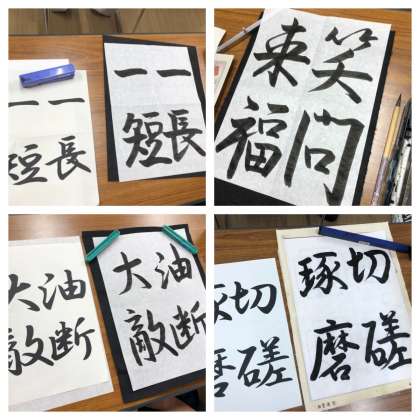 一長
一短
一長
一短
笑門
来福
油断
大敵
油断
大敵
切磋
琢磨
切磋
琢磨